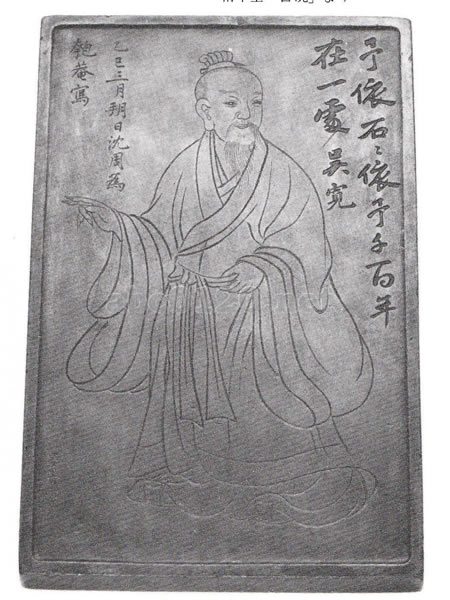 予依石〻依予千百年
在一處 吳寬
乙巳三月朔日沈周為
匏菴寫